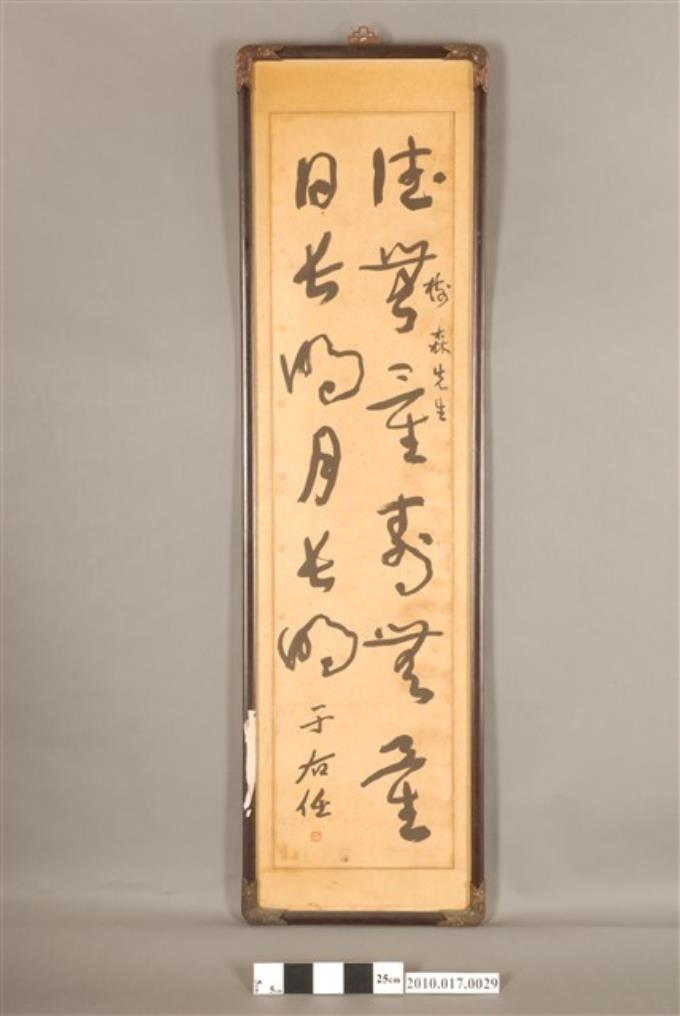 德無量壽無量
樹森先生
日長明月長明
于右任
5cm
25cm
2010.017.0029